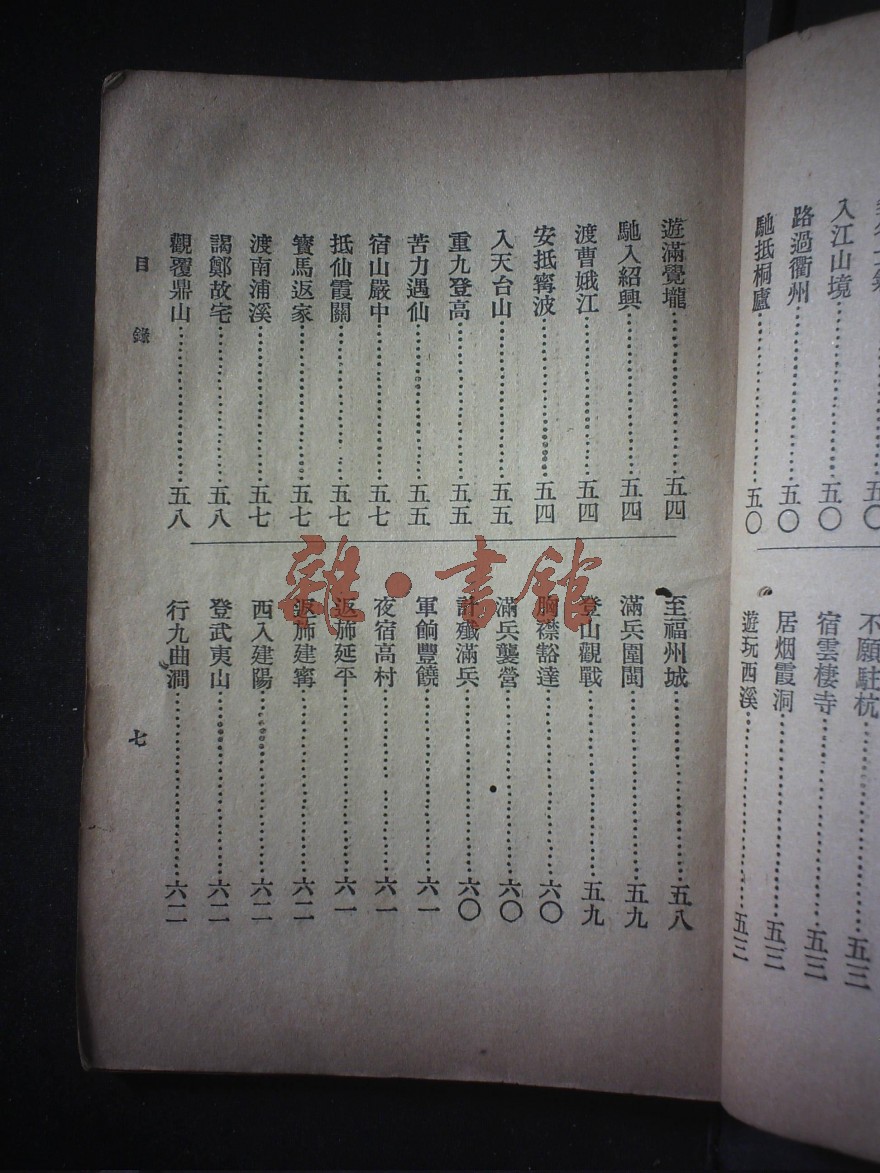 五〇
入江山境……五〇
路過衢州……五〇
馳抵桐廬……五〇
不願駐杭……五三
宿雲棲寺……五三
居烟霞洞……五三
遊玩西溪……五三
遊滿覺壠……五四
馳入紹興……五四
渡曹娥江……五四
安抵寗波……五四
入天台山……五五
重九登高……五五
苦力遇仙……五五
宿山嚴中……五七
抵仙霞關……五七
賓馬返家……五七
渡南浦溪……五七
謁鄭故宅……五八
觀覆鼎山……五八
至福州城……五八
滿兵圍閩……五九
登山觀戰……五九
胸襟豁達……六〇
滿兵襲營……六〇
計殲滿兵……六〇
軍餉豐饒……六一
夜宿高村……六一
返斾延平……六一
返斾建寗……六二
西入建陽……六二
登武夷山……六二
行九曲澗……六二
目錄
七
雜·書館